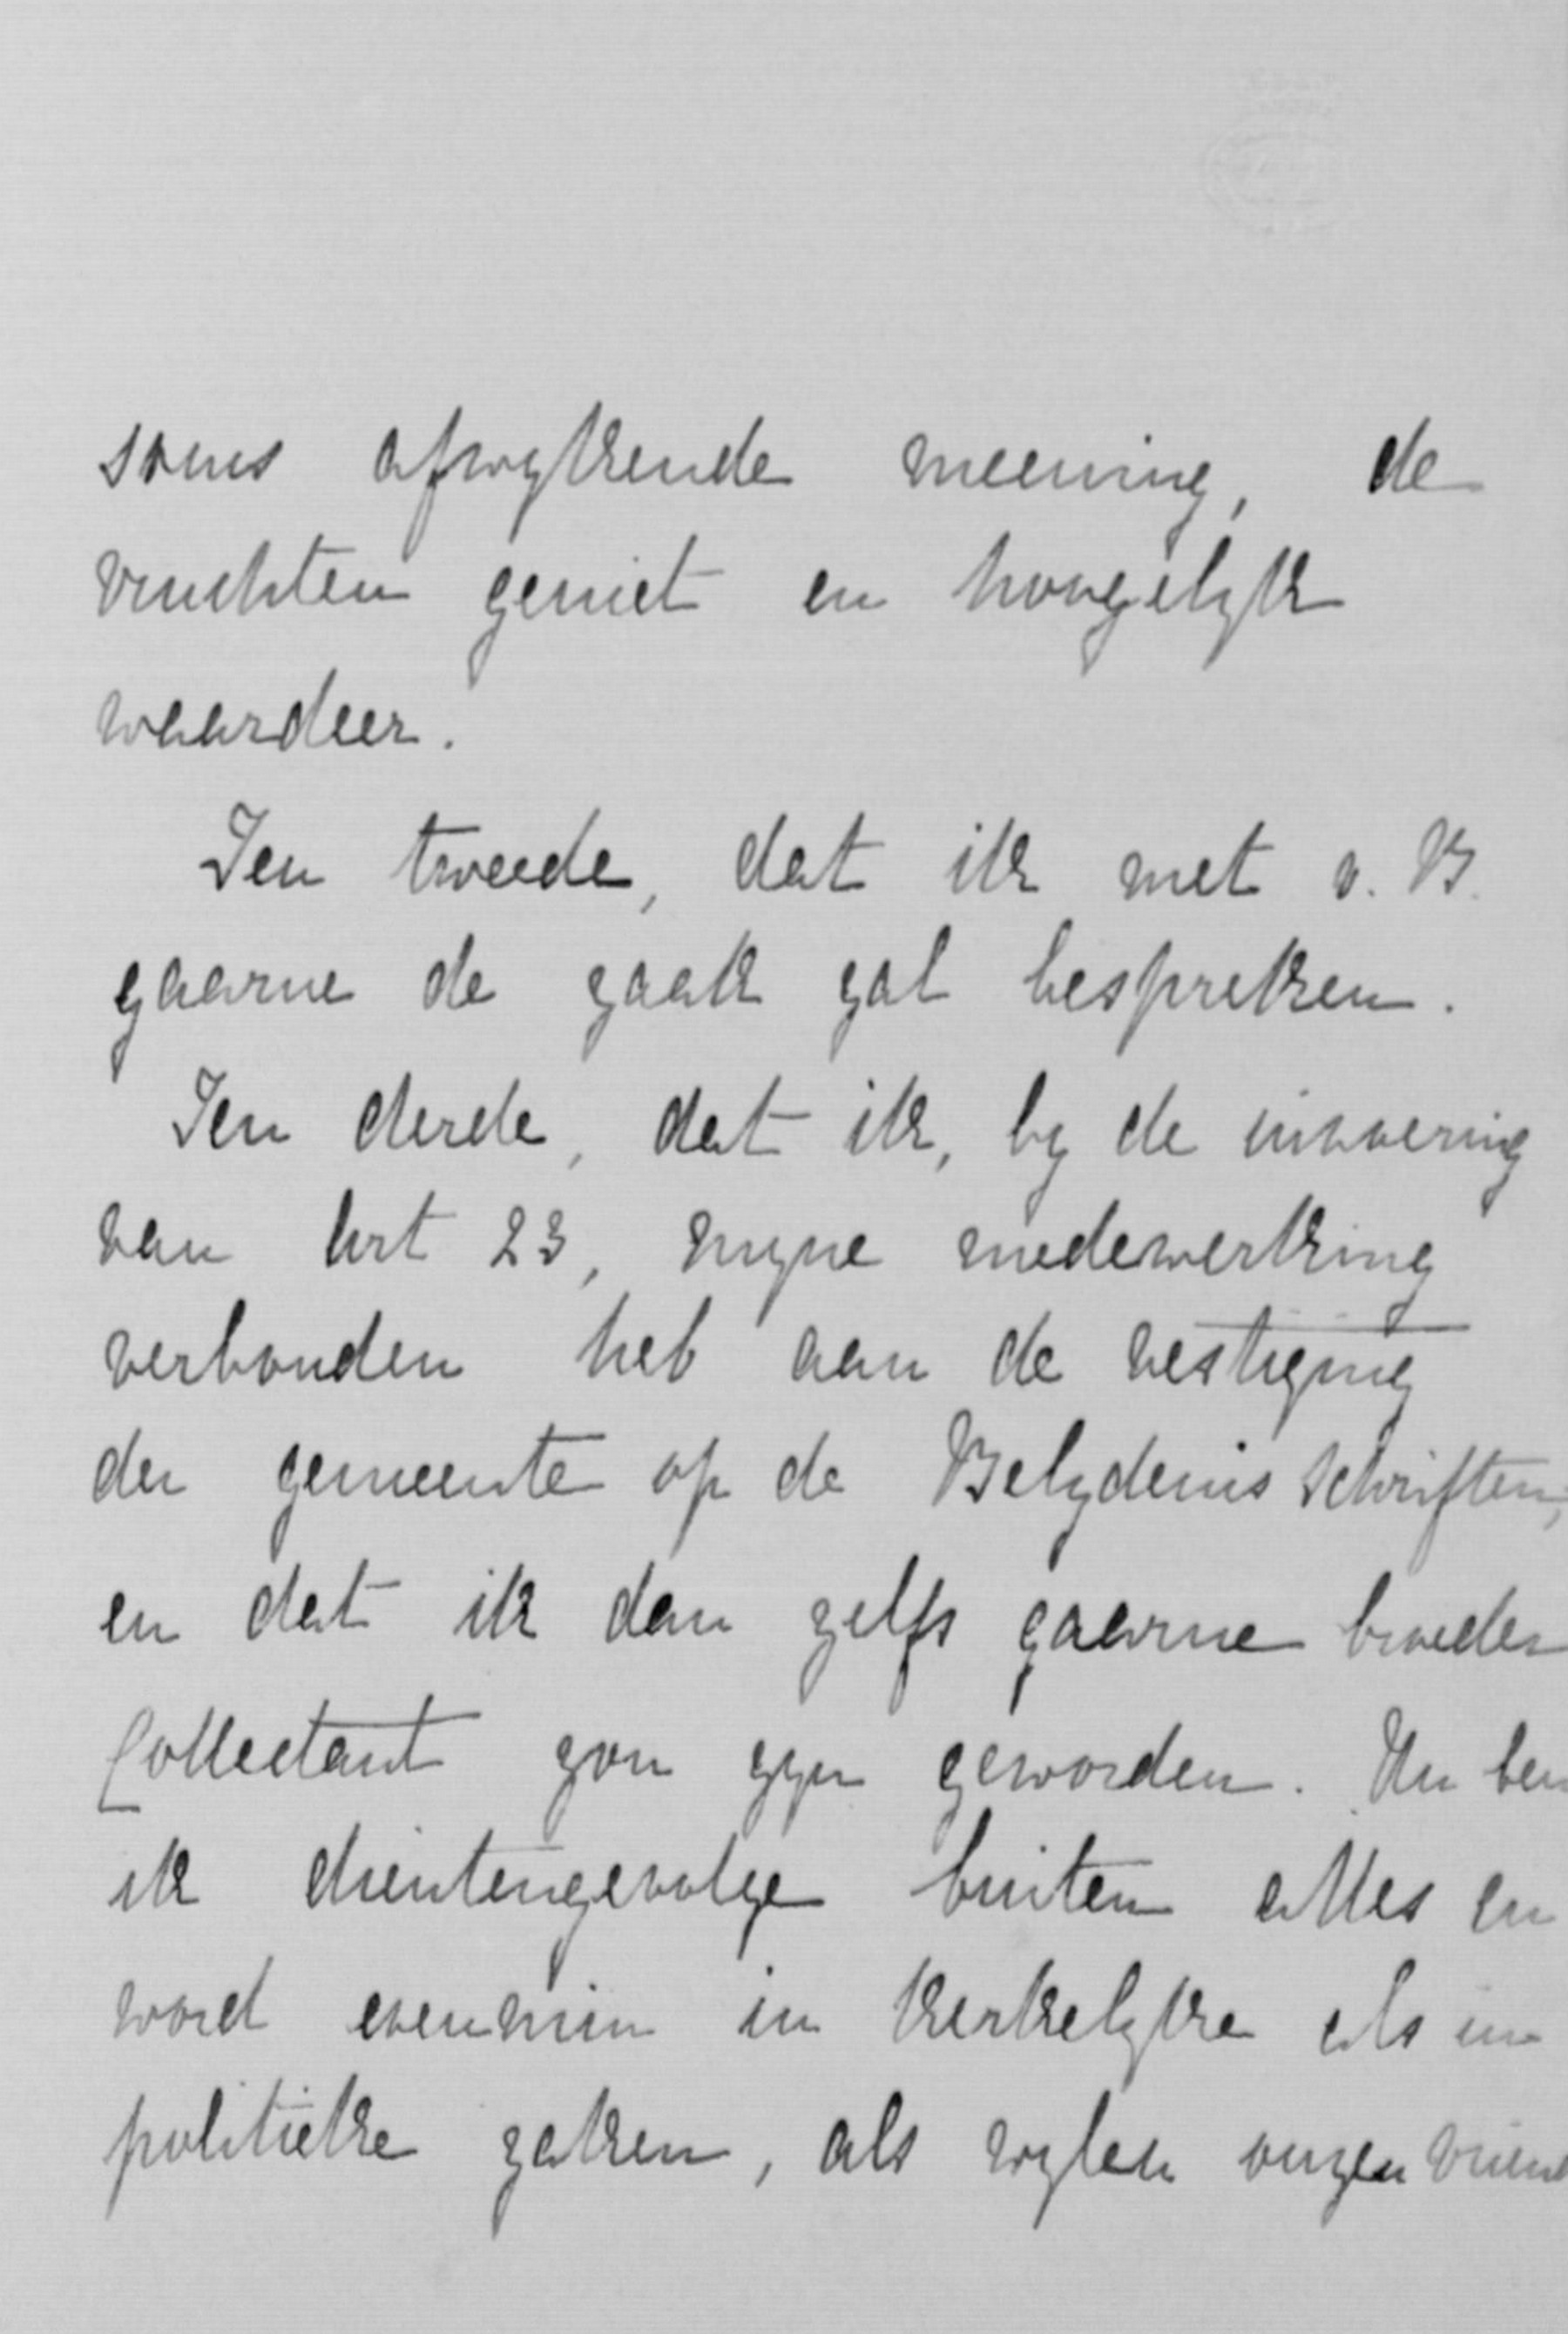 soms afwijkende meening, de
vruchten geniet en hoogelijk
waardeer.
Ten tweede, dat ik met v. B.
gaarne de zaak zal bespreken.
Ten derde, dat ik, bij de invoering
van Art 23, mijne medewerking
verbonden heb aan de vestiging
der gemeente op de Belijdenis Schriften,
en dat ik dan zelfs gaarne broeder
Collectant zou zijn geworden. Nu ben
ik dientengevolge buiten alles en
word evenmin in kerkelijke als in
politieke zaken, als wijlen onzen vriend